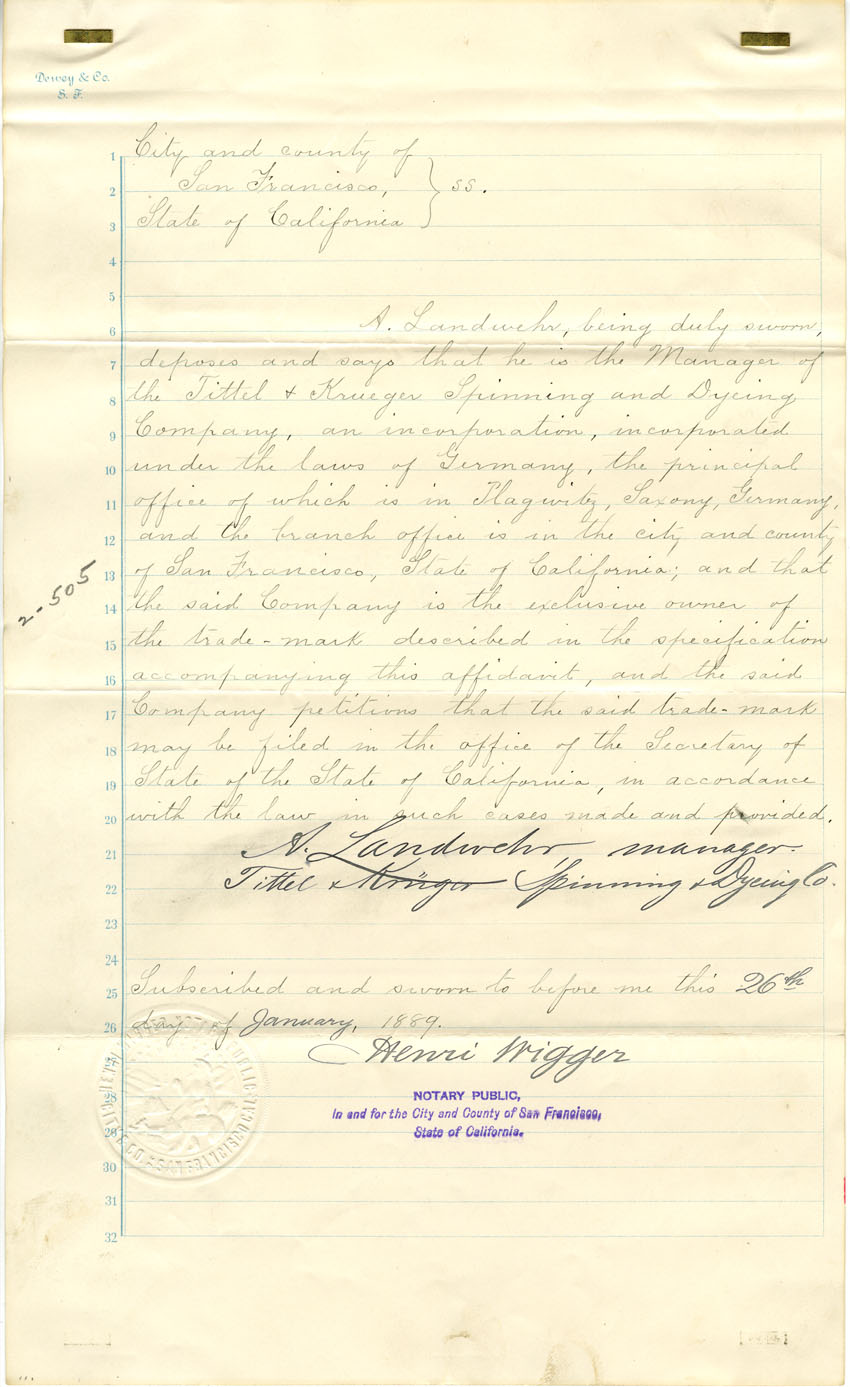 Dewey & Co.
S. F.
1 City and county of
2 San Francisco, } ss.
3 State of California
4
5
6 A. Landwehr, being duly sworn,
7 deposes and says that he is the Manager of
8 the Tittel & Krueger Spinning and Dyeing
9 Company, an incorporation, incorporated
10 under the laws of Germany, the principal
11 office of which is in Plagwitz, Saxony, Germany,
12 and the branch office is in the city and county
13 of San Francisco, State of California; and that
2-505
14 the said Company is the exclusive owner of
15 the trade-mark described in the specification
16 accompanying this affidavit, and the said
17 Company petitions that the said trade-mark
18 may be filed in the office of the Secretary of
19 State of the State of California, in accordance
20 with the law in such cases made and provided.
21 A. Landwehr, manager.
22 Tittel & Krüger Spinning & Dyeing Co.
23
24
25 Subscribed and sworn to before me this 26th
26 day of January, 1889.
27 Henri Wigger
28 NOTARY PUBLIC,
In and for the City and County of San Francisco,
29 State of California.
30
31
32